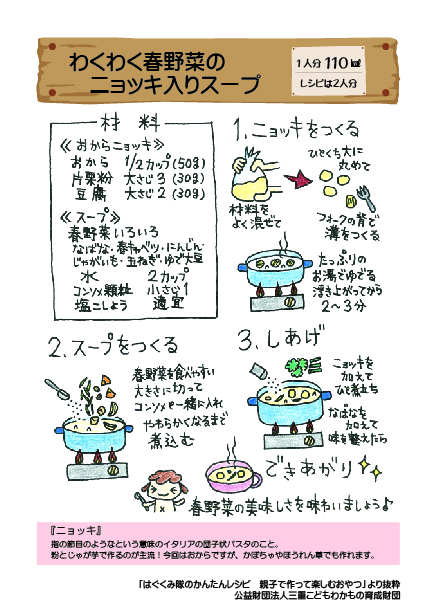 わくわく春野菜の
ニョッキ入りスープ
1人分 110 ㎉
レシピは2人分
材 料
≪おからニョッキ≫
おから 1/2カップ(50g)
片栗粉 大さじ3(30g)
豆腐 大さじ2(30g)
≪スープ≫
春野菜いろいろ
なばな・春キャベツ・にんじん・
じゃがいも・玉ねぎ・ゆで大豆
水 2カップ
コンソメ顆粒 小さじ1
塩こしょう 適宜
1.ニョッキをつくる
材料を
よく混ぜて
ひとくち大に
丸めて
フォークの背で
溝をつくる
たっぷりの
お湯でゆでる
浮き上がってから
2〜3分
2.スープをつくる
春野菜を食べやすい
大きさに切って
コンソメと一緒に入れ
やわらかくなるまで
煮込む
3.しあげ
ニョッキを
加えて
ひと煮立ち
なばなを
加えて
味を整えたら
できあがり
春野菜の美味しさを味わいましょう♪
『ニョッキ』
指の節目のようなという意味のイタリアの団子状パスタのこと。
粉とじゃが芋で作るのが主流！今回はおからですが、かぼちゃやほうれん草でも作れます。
「はぐくみ隊のかんたんレシピ　親子で作って楽しむおやつ」より抜粋
公益財団法人三重こどもわかもの育成財団